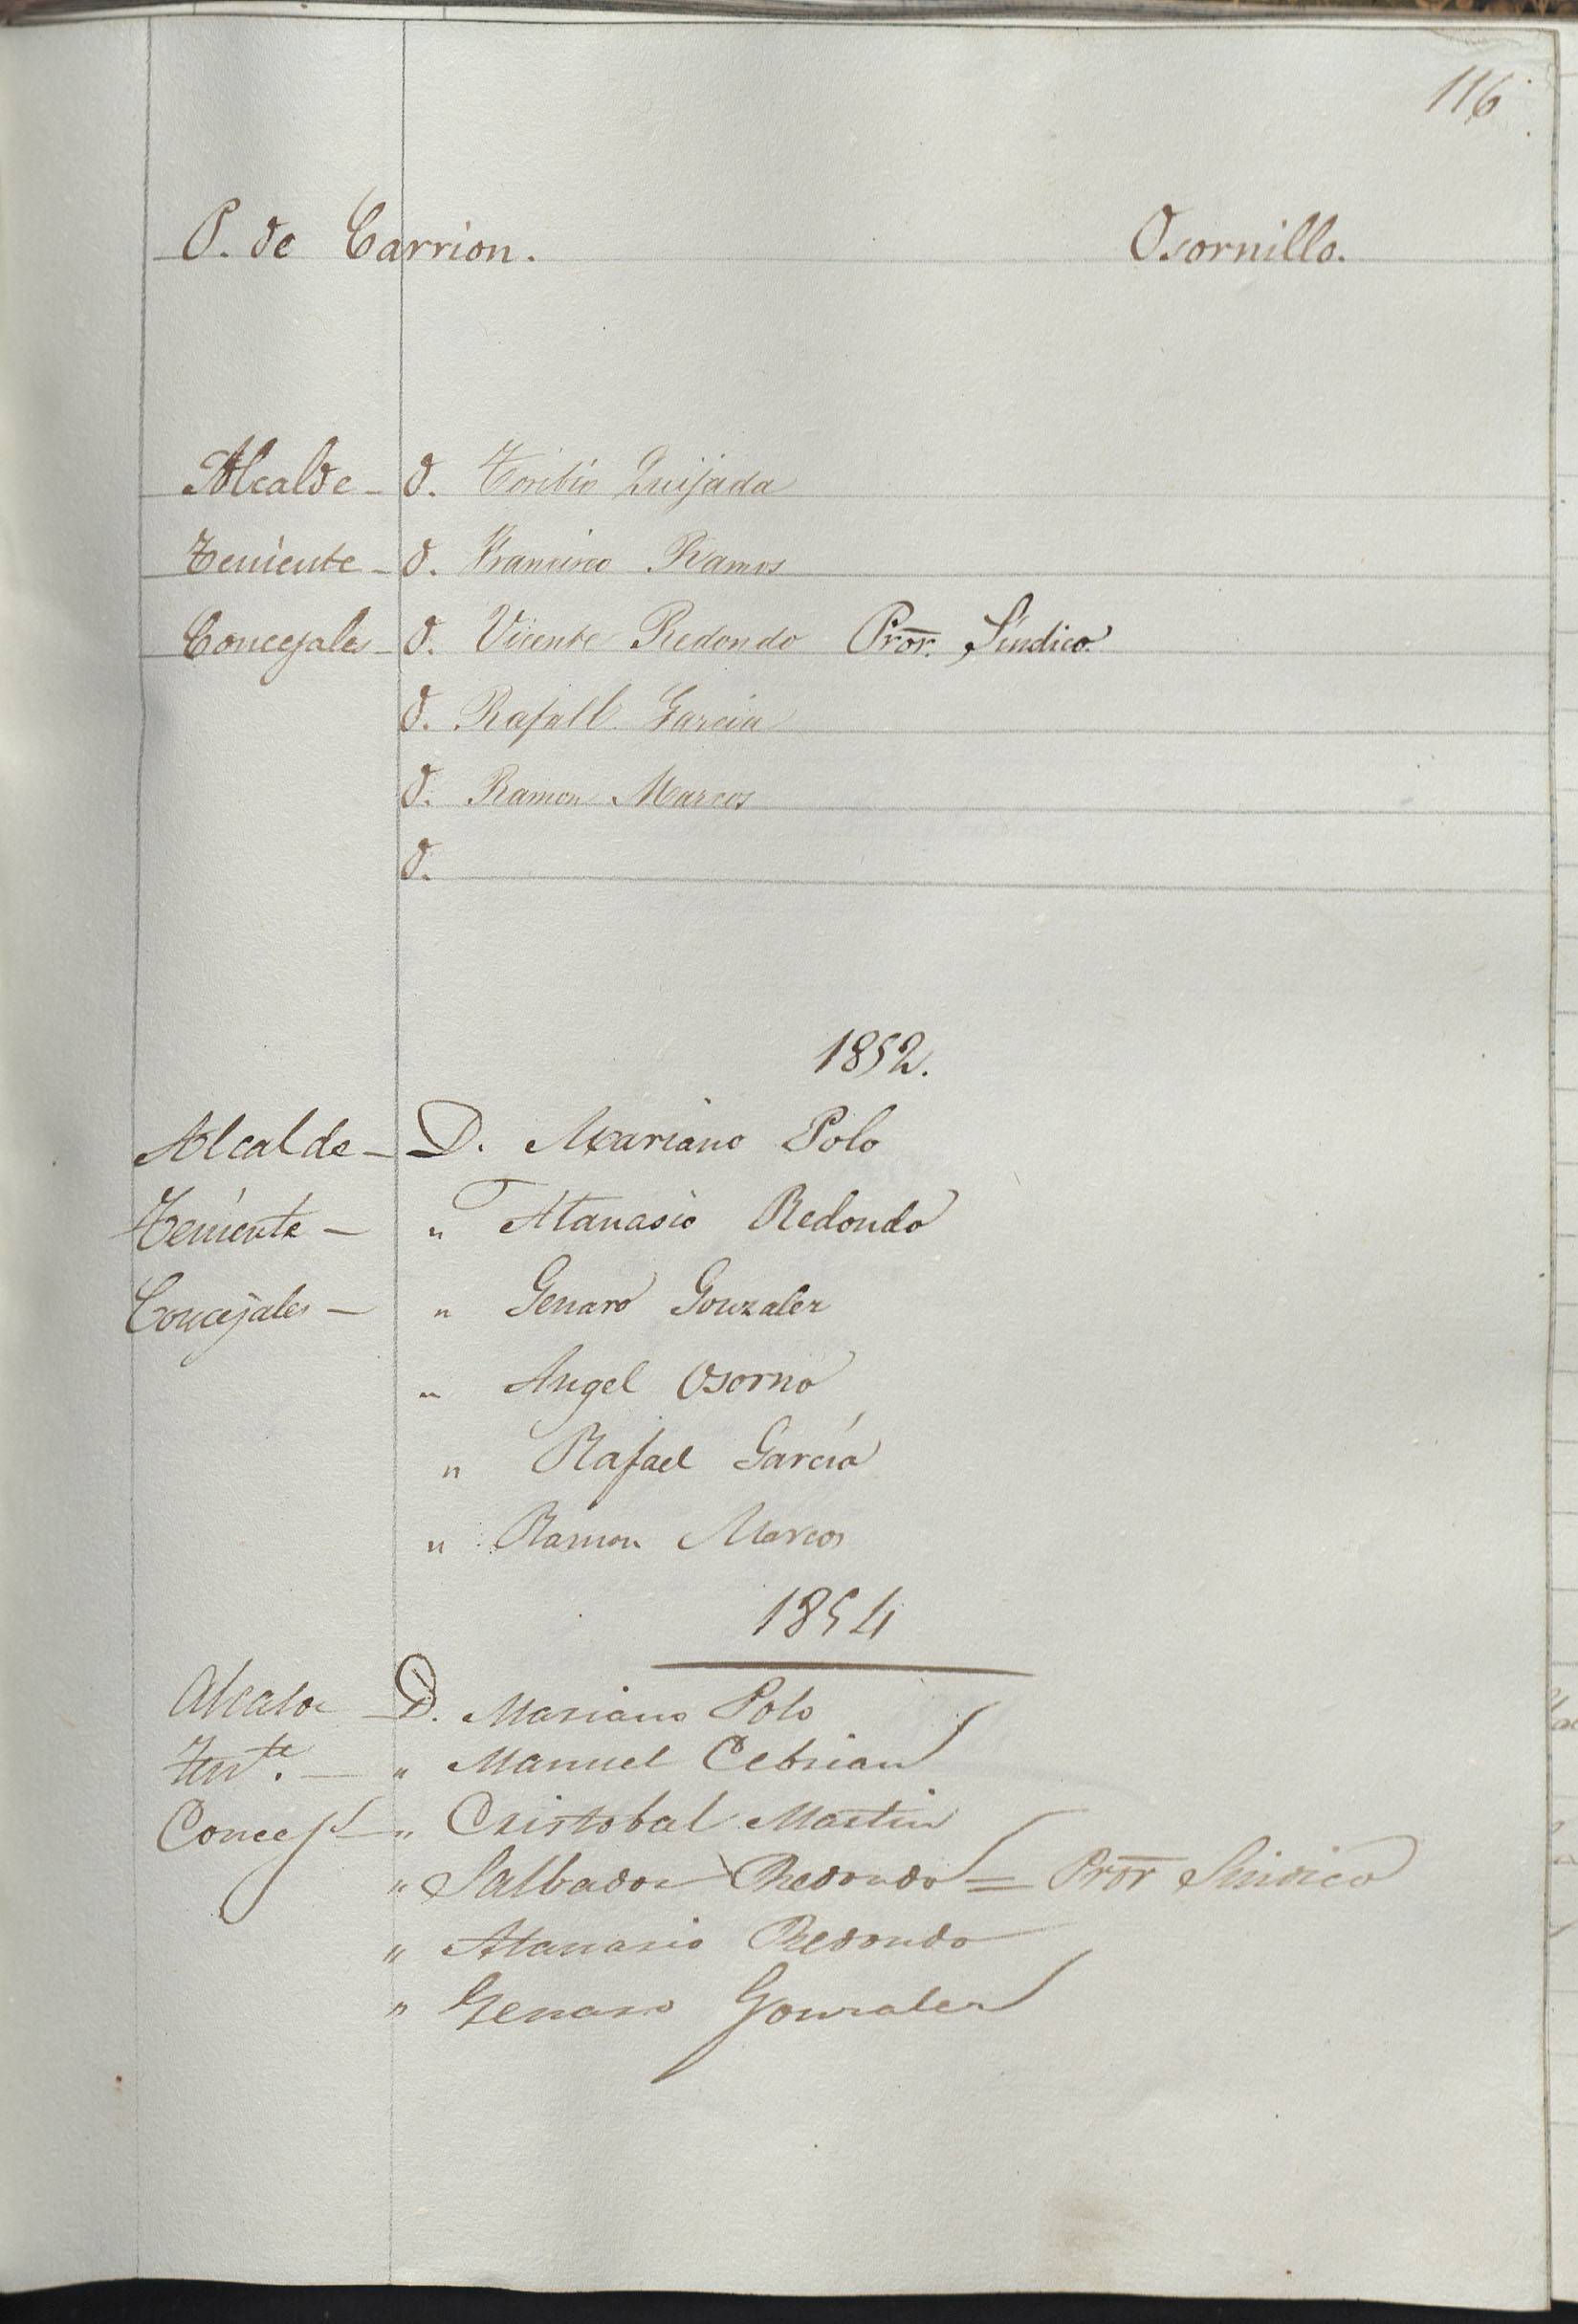 116
P. de Carrion. Osornillo.
Alcalde - D. Toribio Quijada
Teniente - D. Francisco Ramos
Concejales - D. Vicente Redondo Pror. Síndico.
D. Rafall Garcia
D. Ramon Marcos
D.
1852.
Alcalde - D. Mariano Polo
Teniente - " Atanasio Redondo
Concejales - " Genaro Gonzalez
" Angel Osorno
" Rafael García
" Ramon Marcos
1854
Alcalde D. Mariano Polo
Tente. - " Manuel Cebrian
Concejs - " Cristobal Martin
" Salbador Redondo = Pror Sindico
" Atanasio Redondo
" Genaro Gonzalez